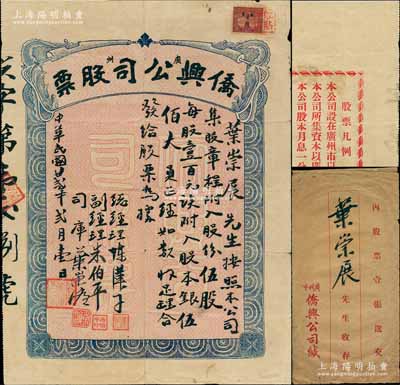 上海陽明拍賣
廣州
僑興公司股票
葉崇展先生按照本公司
集股章程附入股份伍股
每股壹百元該附入股本銀伍
佰大員正經如數收足理合
發給股票為據
總經理
副經理朱伯平
司庫葉崇
中華民國廿弍年弍月壹日
股票凡例
本公司設在廣州市
本公司所集資本以
本公司股本月息一分
內股票壹張送交
葉崇展先生收存
廣州市
僑興公司緘